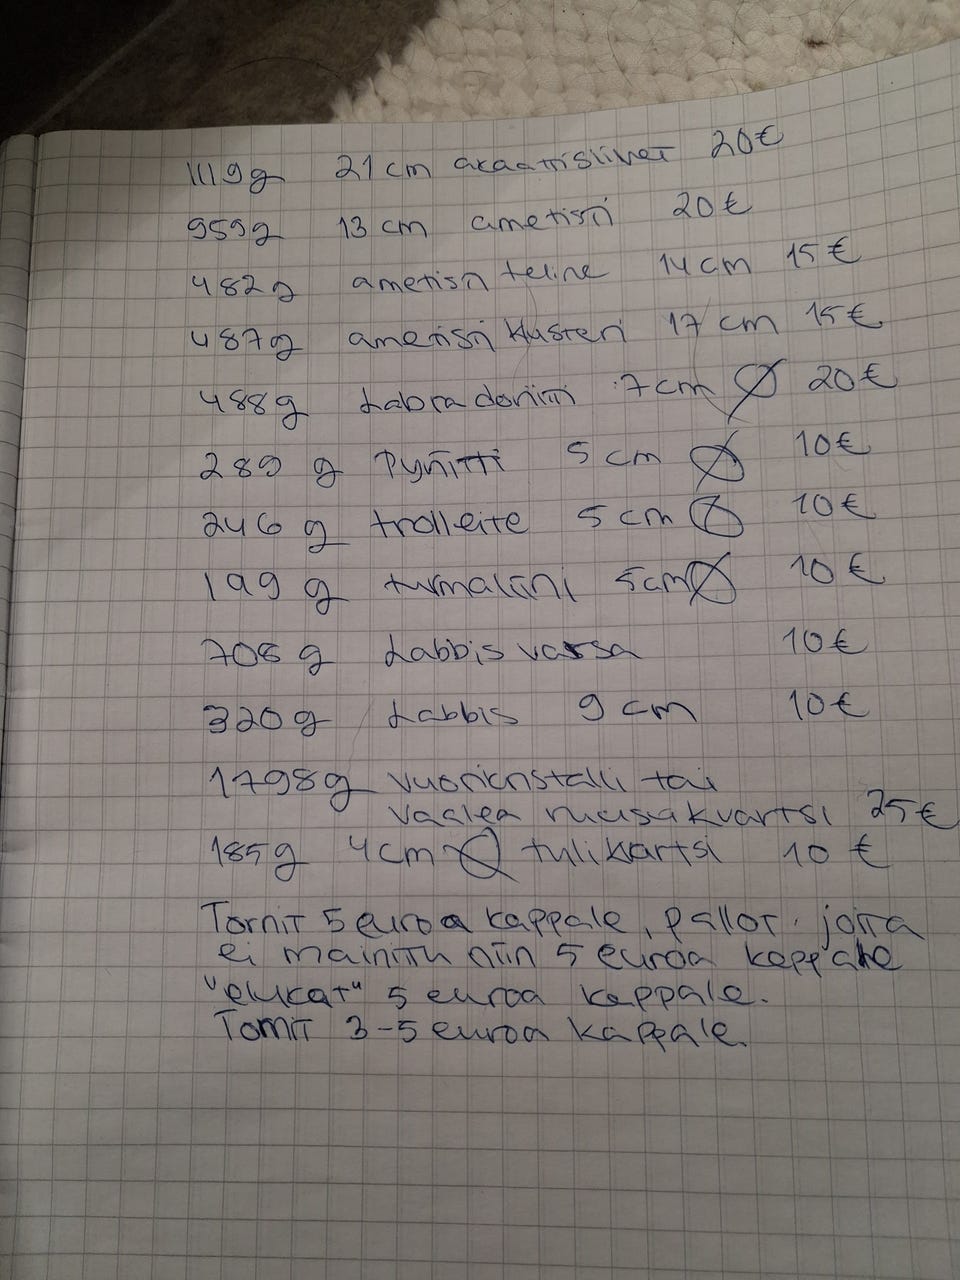 1119g 21 cm akaattislivet 20€
959g 13 cm ametisti 20€
482g ametisti teline 14 cm 15€
487g ametisti klusteri 17 cm 15€
488g Labradoriitti 7cm Ø 20€
289 g Pyriitti 5 cm Ø 10€
246 g trolleite 5 cm Ø 10€
199 g turmaliini 5cm Ø 10€
708 g Labbis vassa 10€
320g Labbis 9 cm 10€
1798g vuorikristalli tai
vaalea ruusukvartsi 25€
185g 4cm Ø tulikvartsi 10 €
Tornit 5 euroa kappale, pallot joita
ei mainittu niin 5 euroa kappale
"elukat" 5 euroa kappale.
Tornit 3-5 euroa kappale.